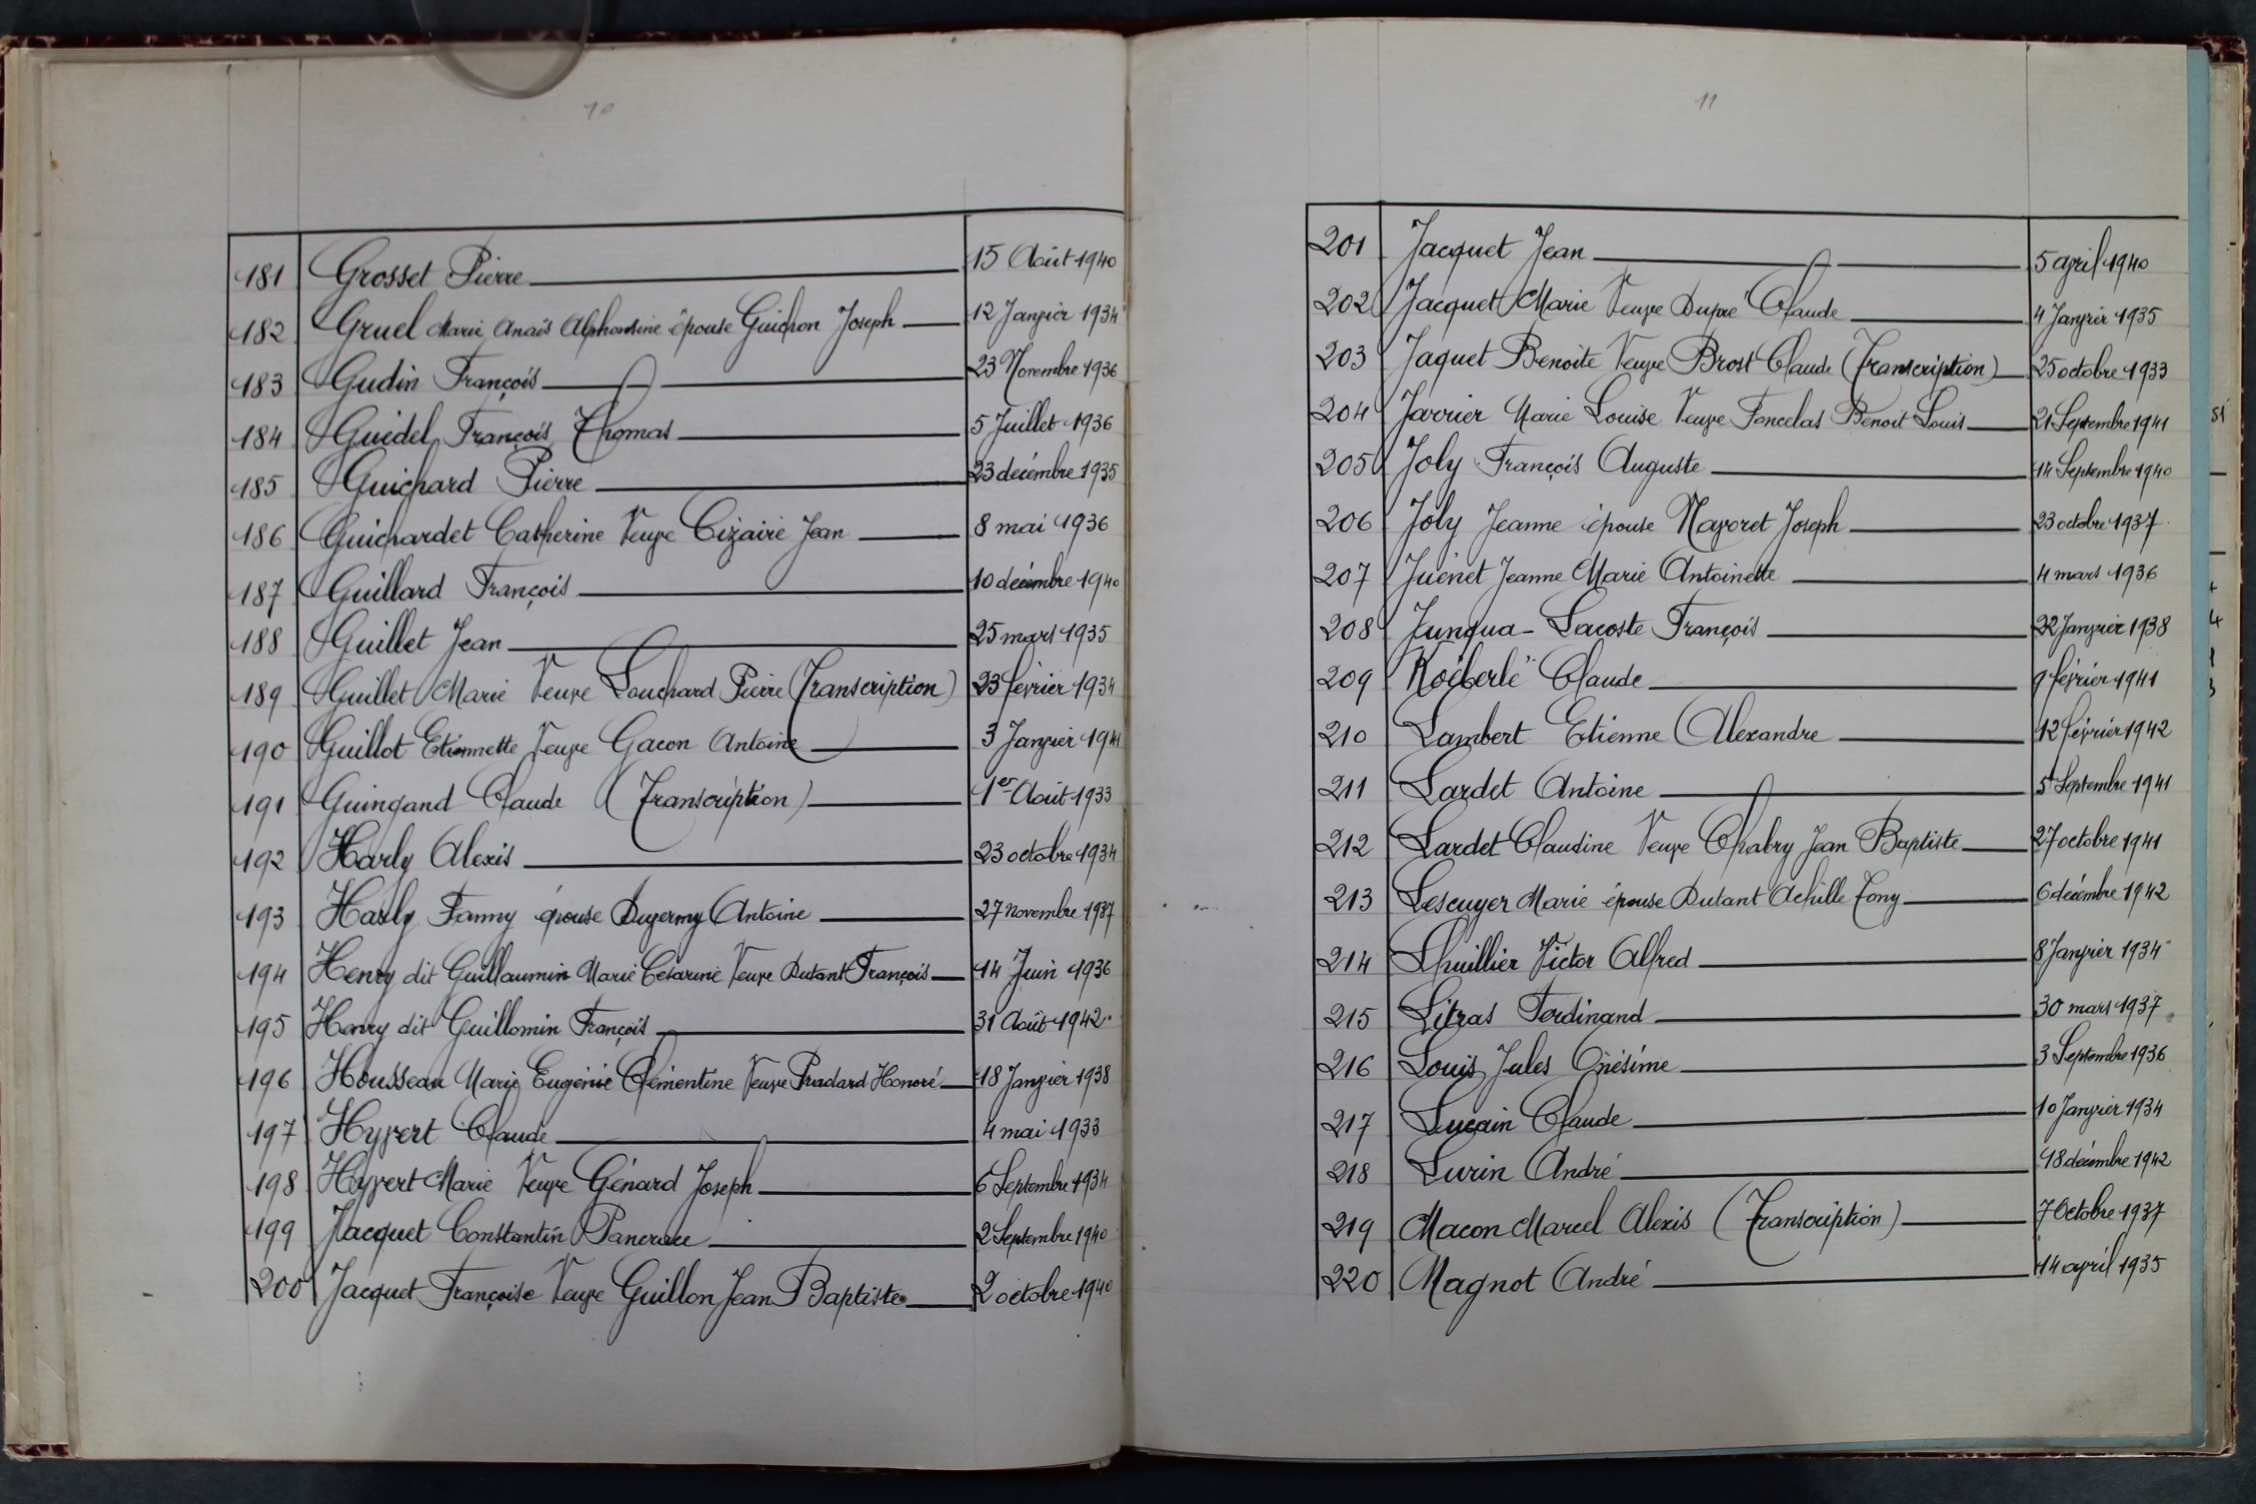 10
181 Grosset Pierre 15 Août 1940
182 Gruel Marie Anaïs Alphonsine épouse Guichon Joseph 12 Janvier 1934
183 Gudin François 23 Novembre 1936
184 Guidel François Thomas 5 Juillet 1936
185 Guichard Pierre 23 décembre 1935
186 Guichardet Catherine Veuve Cizaire Jean 8 mai 1936
187 Guillard François 10 décembre 1940
188 Guillet Jean 25 mars 1935
189 Guillet Marie Veuve Louchard Pierre (Transcription) 23 février 1934
190 Guillot Etiennette Veuve Gacon Antoine 3 Janvier 1941
191 Guingand Claude (Transcription) 1er Août 1933
192 Harly Alexis 23 octobre 1934
193 Harly Fanny épouse Duvermy Antoine 27 novembre 1937
194 Henry dit Guillaumin Marie Césarine Veuve Dutant François 14 Juin 1936
195 Henry dit Guillomin François 31 Août 1942
196 Housseau Marie Eugénie Clémentine Veuve Pradard Honoré 18 Janvier 1938
197 Hyvert Claude 4 mai 1933
198 Hyvert Marie Veuve Génard Joseph 6 Septembre 1934
199 Jacquet Constantin Pancrace 2 Septembre 1940
200 Jacquet Françoise Veuve Guillon Jean Baptiste 2 octobre 1940
11
201 Jacquet Jean 5 april 1940
202 Jacquet Marie Veuve Dupré Claude 4 Janvier 1935
203 Jaquet Benoite Veuve Brost Claude (Transcription) 25 octobre 1933
204 Javrier Marie Louise Veuve Foncelas Benoit Louis 21 Septembre 1941
205 Joly François Auguste 14 Septembre 1940
206 Joly Jeanne épouse Nayoret Joseph 23 octobre 1937
207 Juenet Jeanne Marie Antoinette 4 mars 1936
208 Junqua-Lacoste François 22 Janvier 1938
209 Koëberlé Claude 9 février 1941
210 Lambert Etienne Alexandre 12 février 1942
211 Lardet Antoine 5 Septembre 1941
212 Lardet Claudine Veuve Chabry Jean Baptiste 27 octobre 1941
213 Lescuyer Marie épouse Dutant Achille Tony 6 décembre 1942
214 Lhuillier Victor Alfred 8 Janvier 1934
215 Litras Ferdinand 30 mars 1937
216 Louis Jules Onésime 3 Septembre 1936
217 Lucain Claude 10 Janvier 1934
218 Lurin André 18 décembre 1942
219 Macon Marcel Alexis (Transcription) 7 Octobre 1937
220 Magnot André 14 april 1935